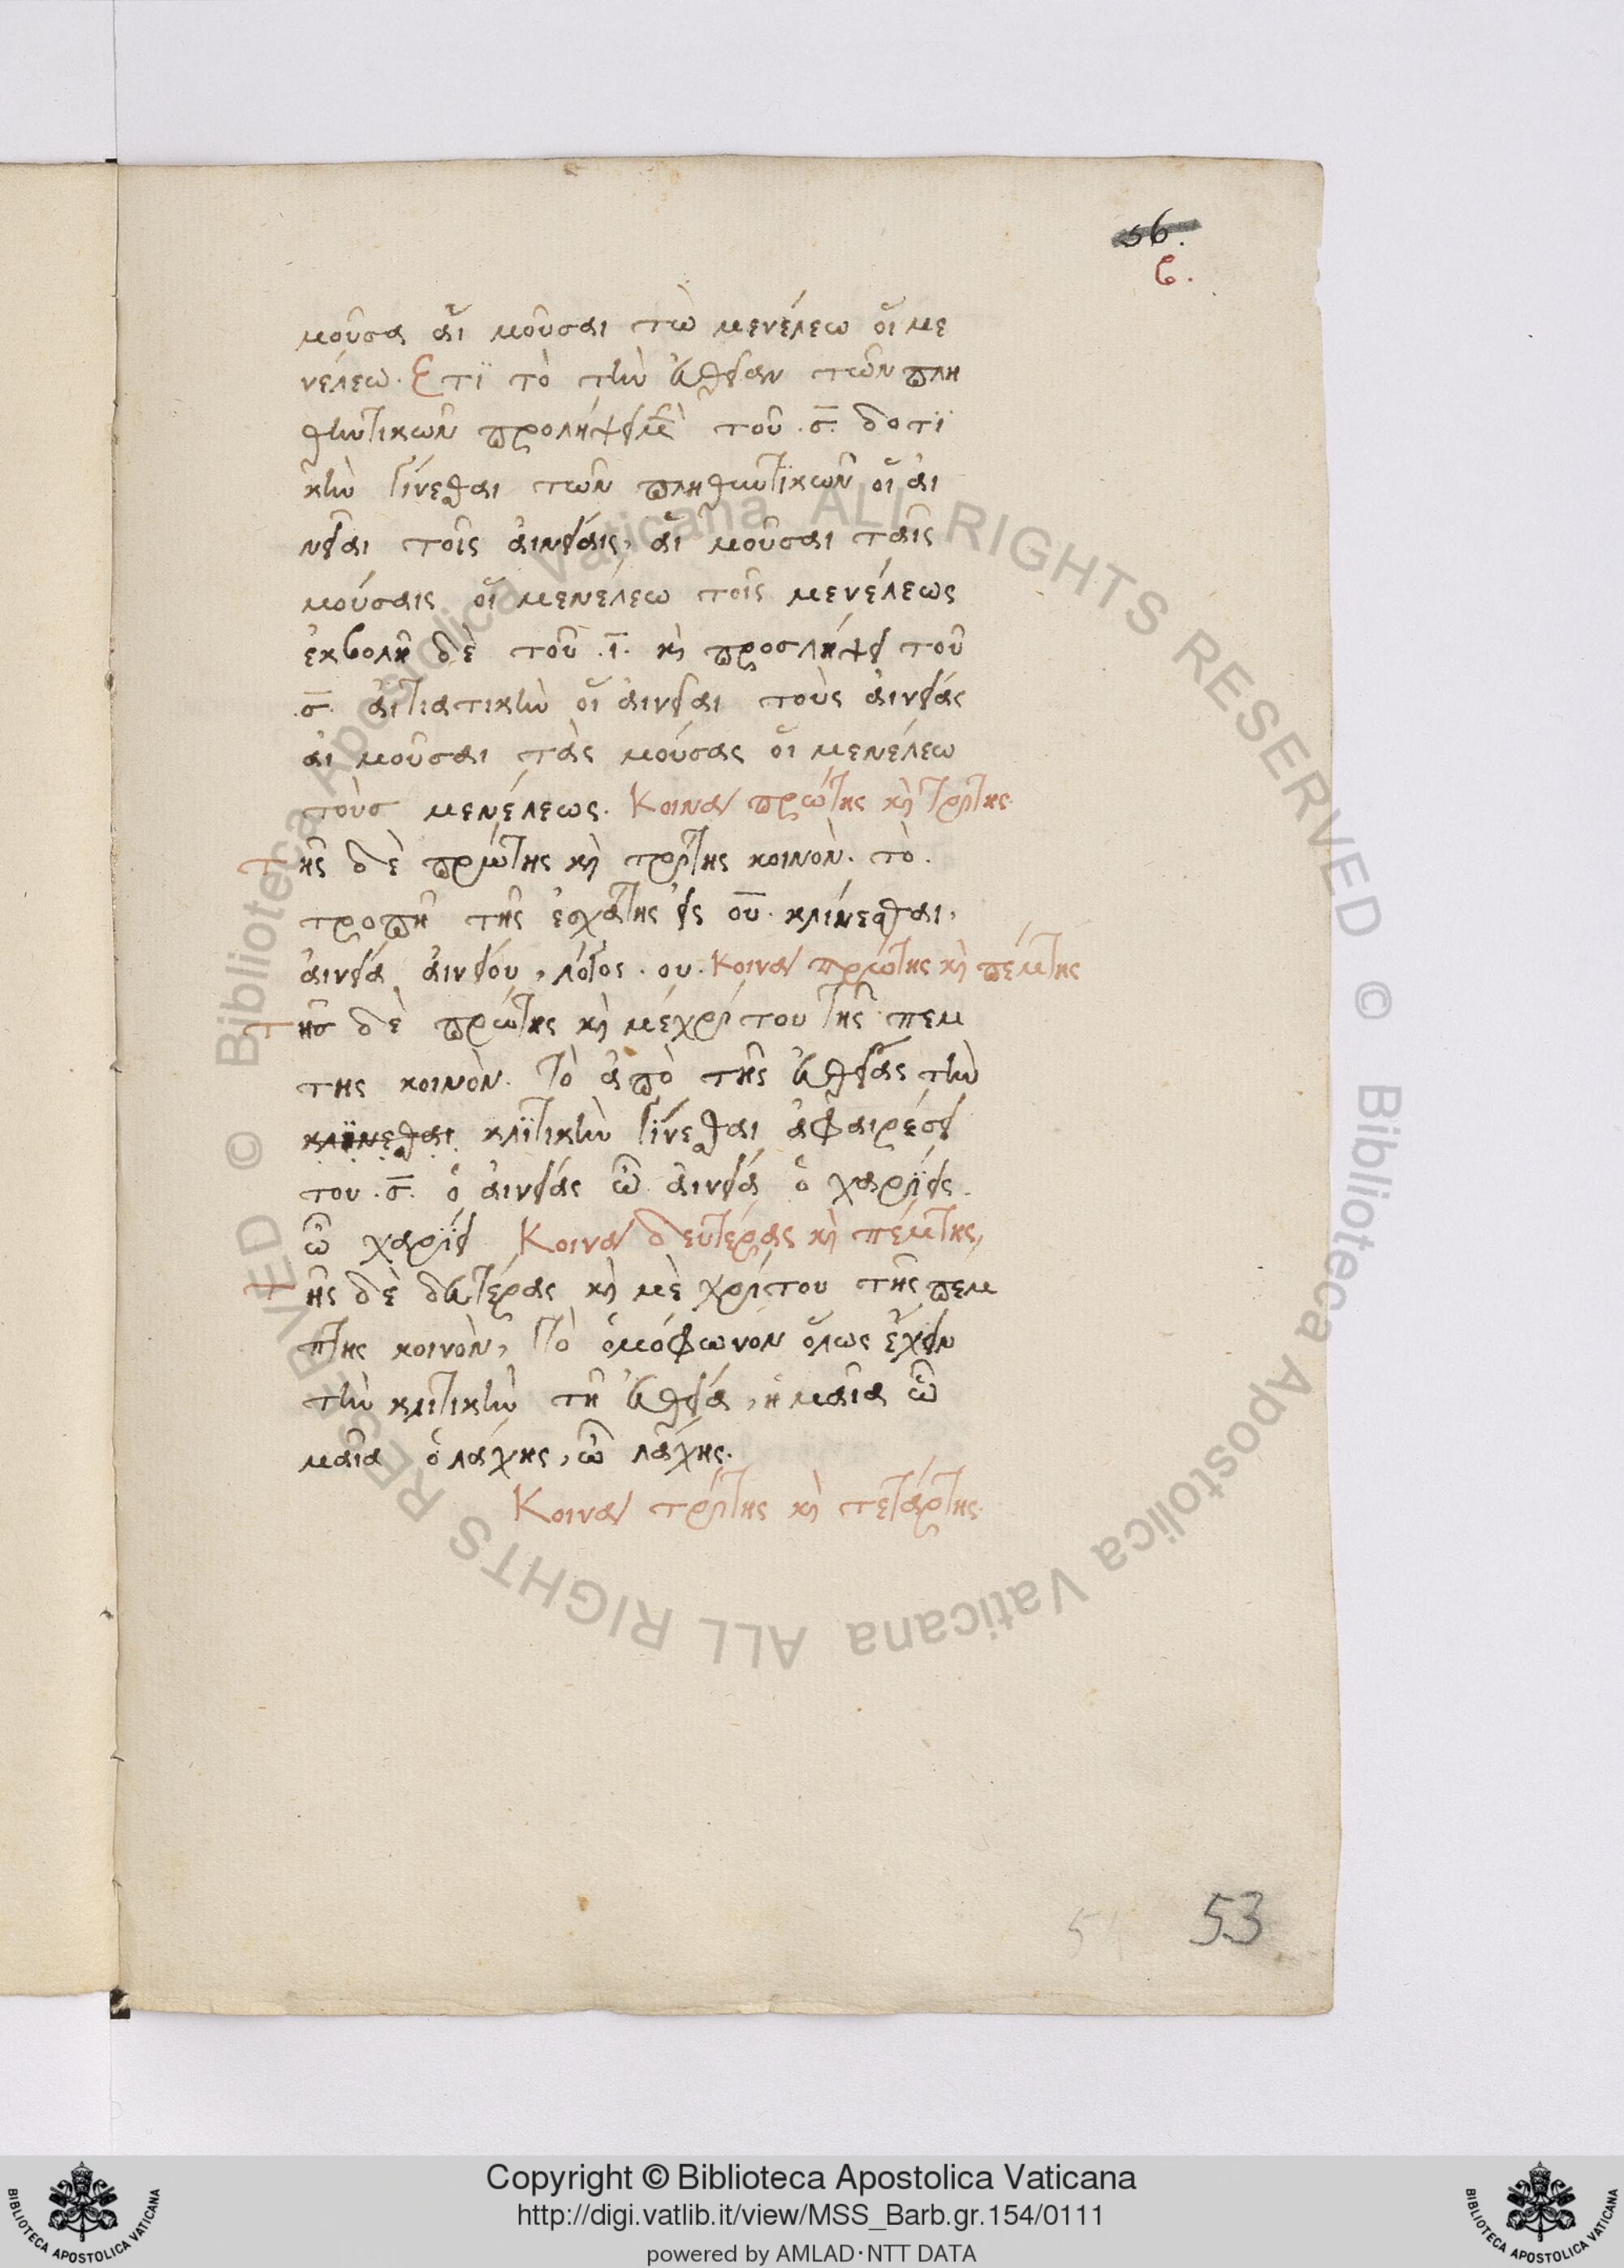 56.
6.
μοῦσα αἱ μοῦσαι τὼ μενέλεω οἱ με
νέλεω. Ετϊ τὸ τὴν εὐθεῖαν τῶν πλη
θυντικῶν προλήψει μὲν τοῦ .σ. δοτϊ
κὴν γίνεσθαι τῶν πληθυντϊκῶν οἱ αἰ
νεῖαι τοῖς αἰνείαις, αἱ μοῦσαι ταῖς
μούσαις οἱ μενέλεω τοῖς μενέλεως
ἐκβολῆ δὲ τοῦ .ι. καὶ προσλήψει τοῦ
.σ. αἰτιατικὴν οἱ αἰνεῖαι τοὺς αἰνείας
αἱ μοῦσαι τὰς μούσας οἱ μενέλεω
τοὺσ μενέλεως. Κοινὰ πρώτης καὶ τρίτης.
Τῆς δὲ πρώτης καὶ τρίτης κοινὸν. τὸ.
τροπῆ τῆς ἐσχάτης εἰς ου. κλίνεσθαι,
αἰνεία αἰνείου, λόγος. ου. Κοινὰ πρώτης καὶ πέμπτης
Τῆσ δὲ πρώτης καὶ μέχρί του τῆς πεμ
της κοινὸν. Τὸ ἀπὸ τῆς εὐθείας τὴν
κλϊνεσθαι κλϊτικὴν γΐνεσθαι ἀφαιρέσει
του .σ. ὁ αἰνείας ὦ αἰνεία ὁ χαρίεις.
ὦ χαρίει Κοινὰ δευτέρας καὶ πέμπτης,
Τῆς δὲ δευτέρας καὶ μὲ χρίτου τῆς πεμ
πτης κοινὸν, Τὸ ὁμόφωνον ὅλως ἔχειν
τὴν κλιτικὴν τῆ εὐθεία, ἡ μαῖα ὦ
μαῖα ὁ λάχης, ὦ λάχης.
Κοινὰ τρίτης καὶ τετάρτης.
53
Copyright © Biblioteca Apostolica Vaticana
http://digi.vatlib.it/view/MSS_Barb.gr.154/0111
powered by AMLAD·NTT DATA
BIBLIOTECA APOSTOLICA VATICANA
BIBLIOTECA APOSTOLICA VATICANA
© Biblioteca Apostolica Vaticana ALL RIGHTS RESERVED © Biblioteca Apostolica Vaticana ALL RIGHTS RESERVED